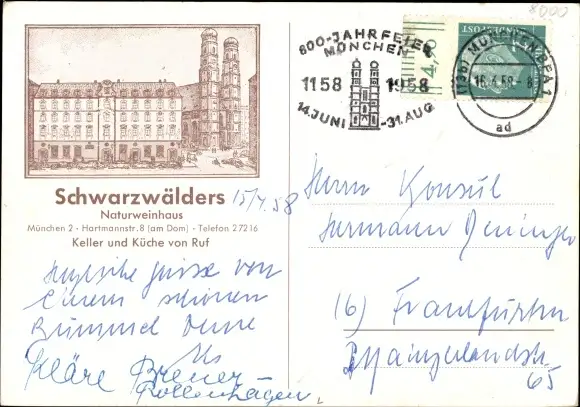 8000
800-JAHRFEIER
MÜNCHEN
1158 1958
14. JUNI - 31. AUG.
4,70
DEUTSCHE BUNDESPOST
(13b) MÜNCHEN BPA 1
16.4.58 - 8
ad
Schwarzwälders
Naturweinhaus
München 2 - Hartmannstr. 8 (am Dom) - Telefon 27216
Keller und Küche von Ruf
15/4.58
Herzliche Grüsse von
einem schönen
Bummel
Kläre Breuer-
Rollenhagen
Herrn Konsul
Hermann
16) Frankfurt/m
Mainzerlandstr.
65